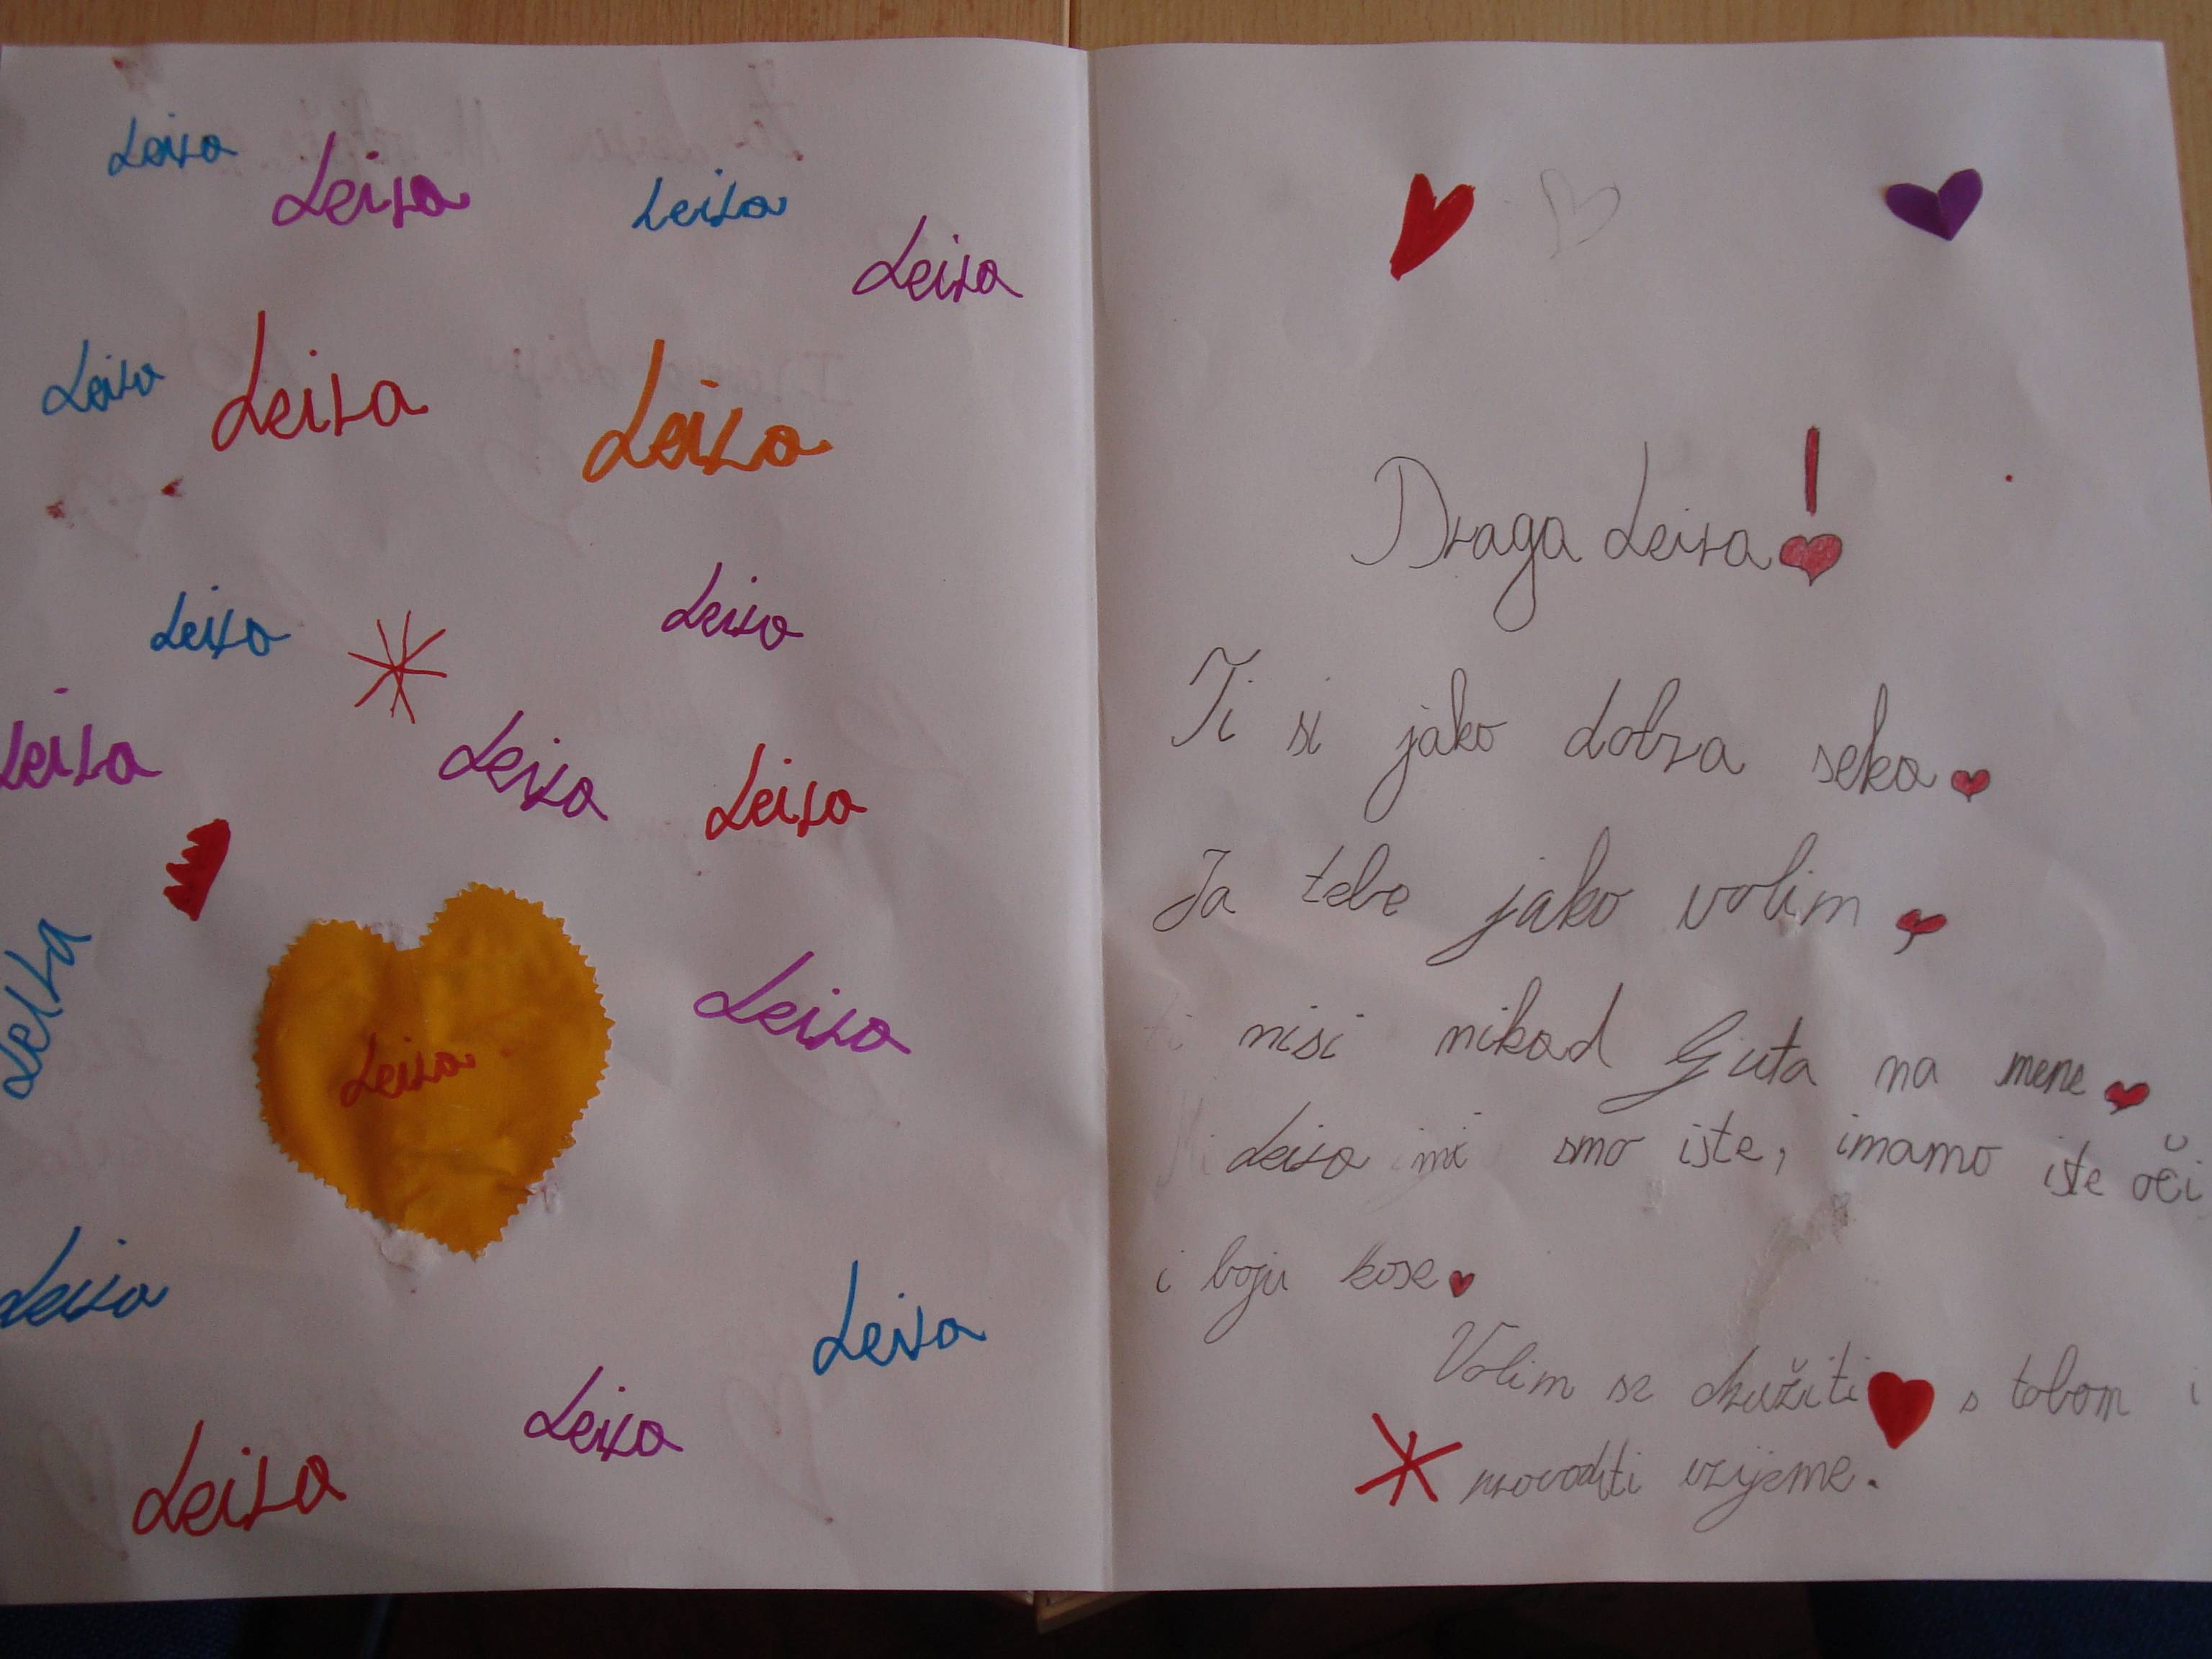 Leira
Leira
Leira
Leira
Leira
Leira
Leira
Leira
Leira
Leira
Leira
Leira
Leira
Leira
Leira
Leira
Leira
Leira
Leira
Draga Leira!
Ti si jako dobra seka
Ja tebe jako volim
ti nisi nikad ljuta na mene
Leira mi smo iste, imamo iste oči
i boju kose
Volim se družiti s tobom i
provoditi vrijeme.